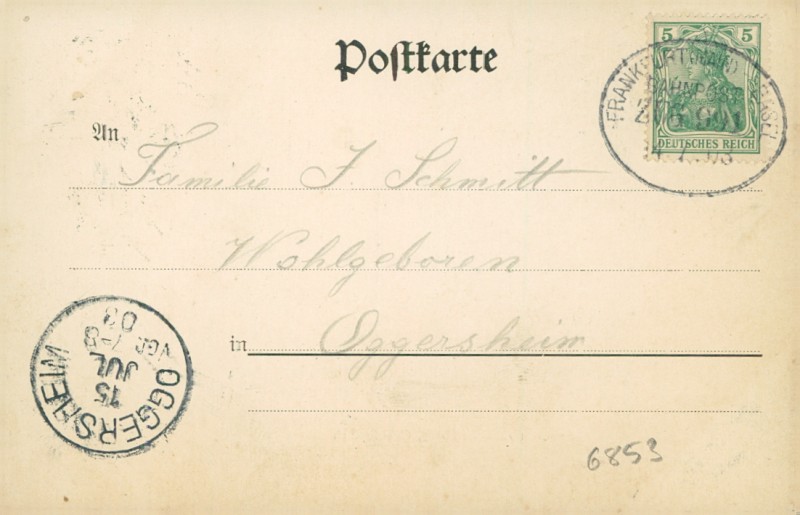 Postkarte
5 5
DEUTSCHES REICH
FRANKFURT (MAIN)
BAHNPOST
ZUG
An
Familie J. Schmitt
Wohlgeboren
in Oggersheim
OGGERSHEIM
15
JUL
VOR 7-8
03
6853